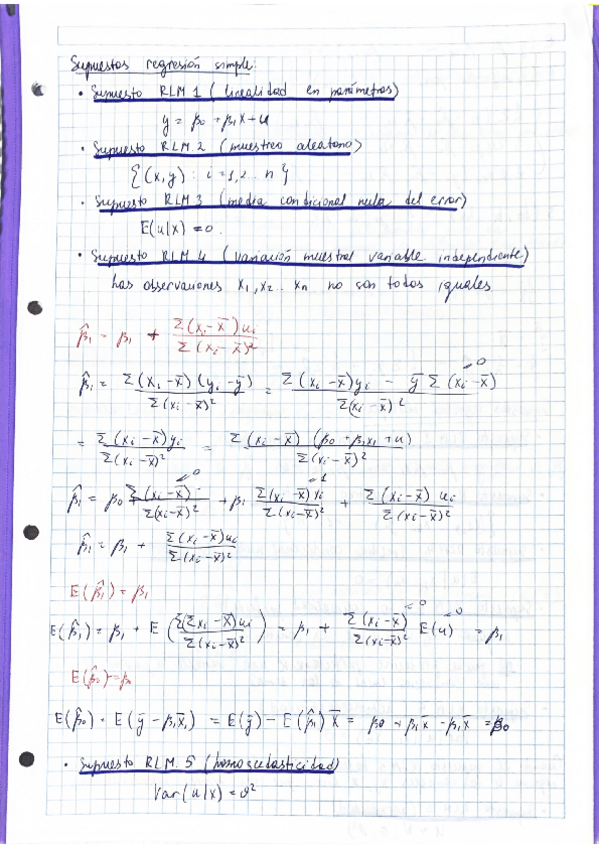 Supuestos regresión simple:
• Supuesto RLM 1 (linealidad en parámetros)
y = β0 + β1x + u
• Supuesto RLM.2 (muestreo aleatorio)
{(x,y) : i = 1,2.. n}
• Supuesto RLM 3 (media condicional nula del error)
E(u|x) = 0.
• Supuesto RLM 4 (variación muestral variable independiente)
las observaciones x1, x2.. xn no son todos iguales
β̂1 = β1 + Σ(xi - x̄)ui / Σ(xi - x̄)²
β̂1 = Σ(xi - x̄)(yi - ȳ) / Σ(xi - x̄)² = Σ(xi - x̄)yi - ȳ Σ(xi - x̄) / Σ(xi - x̄)² = 0
= Σ(xi - x̄)yi / Σ(xi - x̄)² = Σ(xi - x̄)(β0 + β1x1 + u) / Σ(xi - x̄)²
β̂1 = β0 Σ(xi - x̄) / Σ(xi - x̄)² = 0 + β1 Σ(xi - x̄)xi / Σ(xi - x̄)² = 1 + Σ(xi - x̄)ui / Σ(xi - x̄)²
β̂1 = β1 + Σ(xi - x̄)ui / Σ(xi - x̄)²
E(β̂1) = β1
E(β̂1) = β1 + E(Σ(xi - x̄)ui / Σ(xi - x̄)²) = β1 + Σ(xi - x̄) / Σ(xi - x̄)² = 0 E(u) = 0 = β1
E(β̂0) = β0
E(β̂0) = E(ȳ - β̂1x̄1) = E(ȳ) - E(β̂1)x̄ = β0 + β1x̄ - β1x̄ = β0
• Supuesto RLM. 5 (homoscedasticidad)
Var(u|x) = σ²